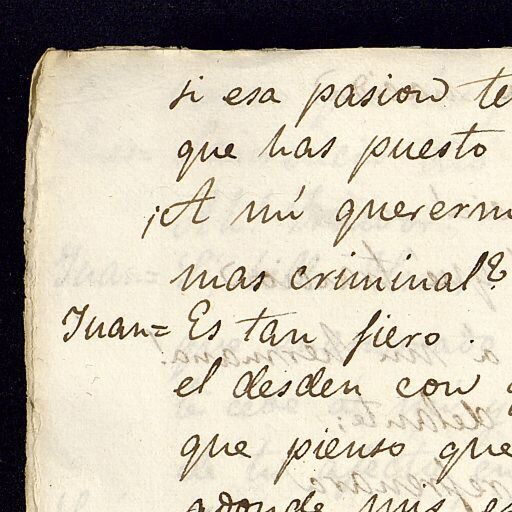 si esa pasion te
que has puesto
¡A mí quererm
mas criminal?
Juan= Es tan fiero.
el desden con
que pienso que
adonde mis es